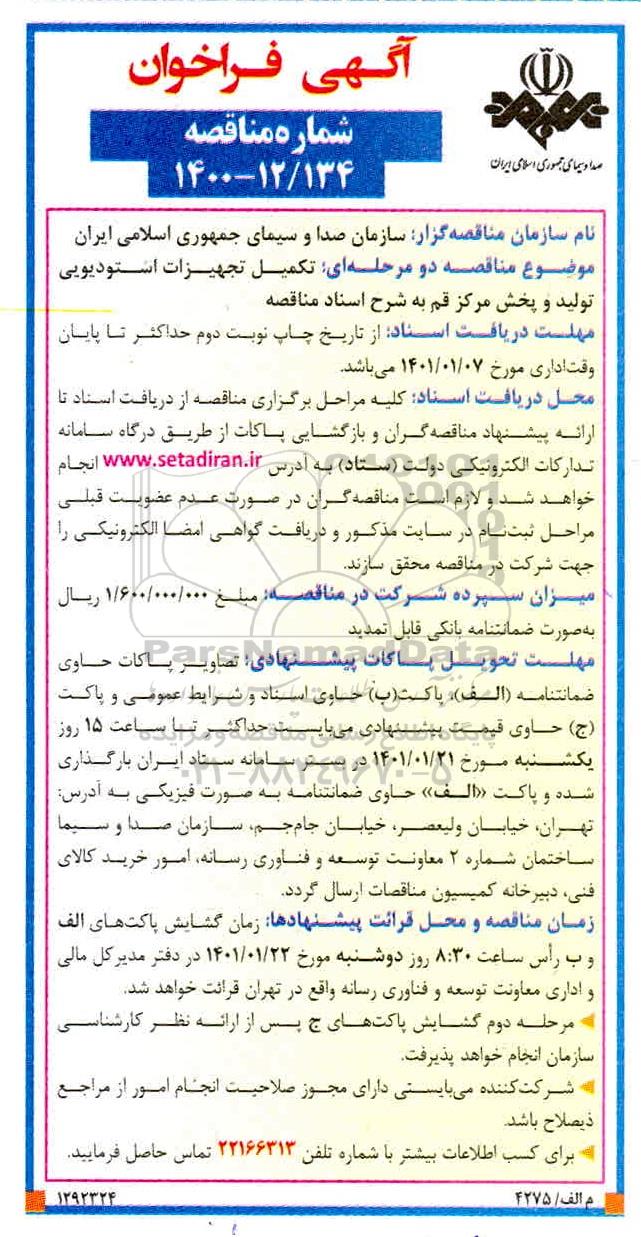 آگهی فراخوان
شماره مناقصه
۱۴۰۰-۱۲/۱۳۴
صدا و سیمای جمهوری اسلامی ایران
نام سازمان مناقصه‌گزار: سازمان صدا و سیمای جمهوری اسلامی ایران
موضوع مناقصه دو مرحله‌ای: تکمیل تجهیزات استودیویی
تولید و پخش مرکز قم به شرح اسناد مناقصه
مهلت دریافت اسناد: از تاریخ چاپ نوبت دوم حداکثر تا پایان
وقت‌اداری مورخ ۱۴۰۱/۰۱/۰۷ می‌باشد.
محل دریافت اسناد: کلیه مراحل برگزاری مناقصه از دریافت اسناد تا
ارائه پیشنهاد مناقصه‌گران و بازگشایی پاکات از طریق درگاه سامانه
تدارکات الکترونیکی دولت (ستاد) به آدرس www.setadiran.ir انجام
خواهد شد و لازم است مناقصه‌گران در صورت عدم عضویت قبلی
مراحل ثبت‌نام در سایت مذکور و دریافت گواهی امضا الکترونیکی را
جهت شرکت در مناقصه محقق سازند.
میزان سپرده شرکت در مناقصه: مبلغ ۱/۶۰۰/۰۰۰/۰۰۰ ریال
به‌صورت ضمانتنامه بانکی قابل تمدید
ParsNamadData
مهلت تحویل پاکات پیشنهادی: تصاویر پاکات حاوی
ضمانتنامه (الف)، پاکت(ب) حاوی اسناد و شرایط عمومی و پاکت
(ج) حاوی قیمت پیشنهادی می‌بایست حداکثر تا ساعت ۱۵ روز
پایگاه اطلاع رسانی مناقصه و مزایده
یکشنبه مورخ ۱۴۰۱/۰۱/۲۱ در بستر سامانه ستاد ایران بارگذاری
۰۲۱-۸۸۳۴۹۶۷۰-۵
شده و پاکت «الف» حاوی ضمانتنامه به صورت فیزیکی به آدرس:
تهران، خیابان ولیعصر، خیابان جام‌جم، سازمان صدا و سیما
ساختمان شماره ۲ معاونت توسعه و فناوری رسانه، امور خرید کالای
فنی، دبیرخانه کمیسیون مناقصات ارسال گردد.
زمان مناقصه و محل قرائت پیشنهادها: زمان گشایش پاکت‌های الف
و ب رأس ساعت ۸:۳۰ روز دوشنبه مورخ ۱۴۰۱/۰۱/۲۲ در دفتر مدیرکل مالی
و اداری معاونت توسعه و فناوری رسانه واقع در تهران قرائت خواهد شد.
مرحله دوم گشایش پاکت‌های ج پس از ارائه نظر کارشناسی
سازمان انجام خواهد پذیرفت.
شرکت‌کننده می‌بایستی دارای مجوز صلاحیت انجام امور از مراجع
ذیصلاح باشد.
برای کسب اطلاعات بیشتر با شماره تلفن ۲۲۱۶۶۳۱۳ تماس حاصل فرمایید.
م الف/ ۴۲۷۵
۱۲۹۲۳۲۴